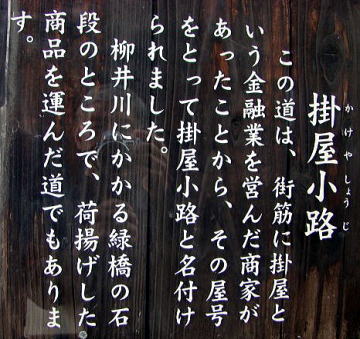 掛屋小路
かけやしょうじ
この道は、街筋に掛屋と
いう金融業を営んだ商家が
あったことから、その屋号
をとって掛屋小路と名付け
られました。
柳井川にかかる緑橋の石
段のところで、荷揚げした
商品を運んだ道でもありま
す。